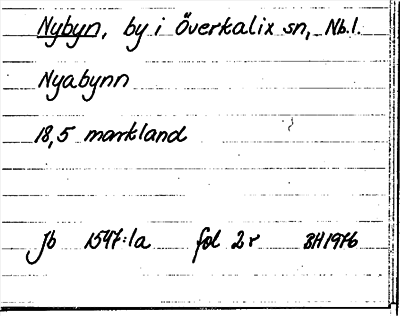 Nybyn, by i Överkalix sn, Nb.l.
Nyabynn
18,5 markland
Jb 1547:1a fol 2r BH1976